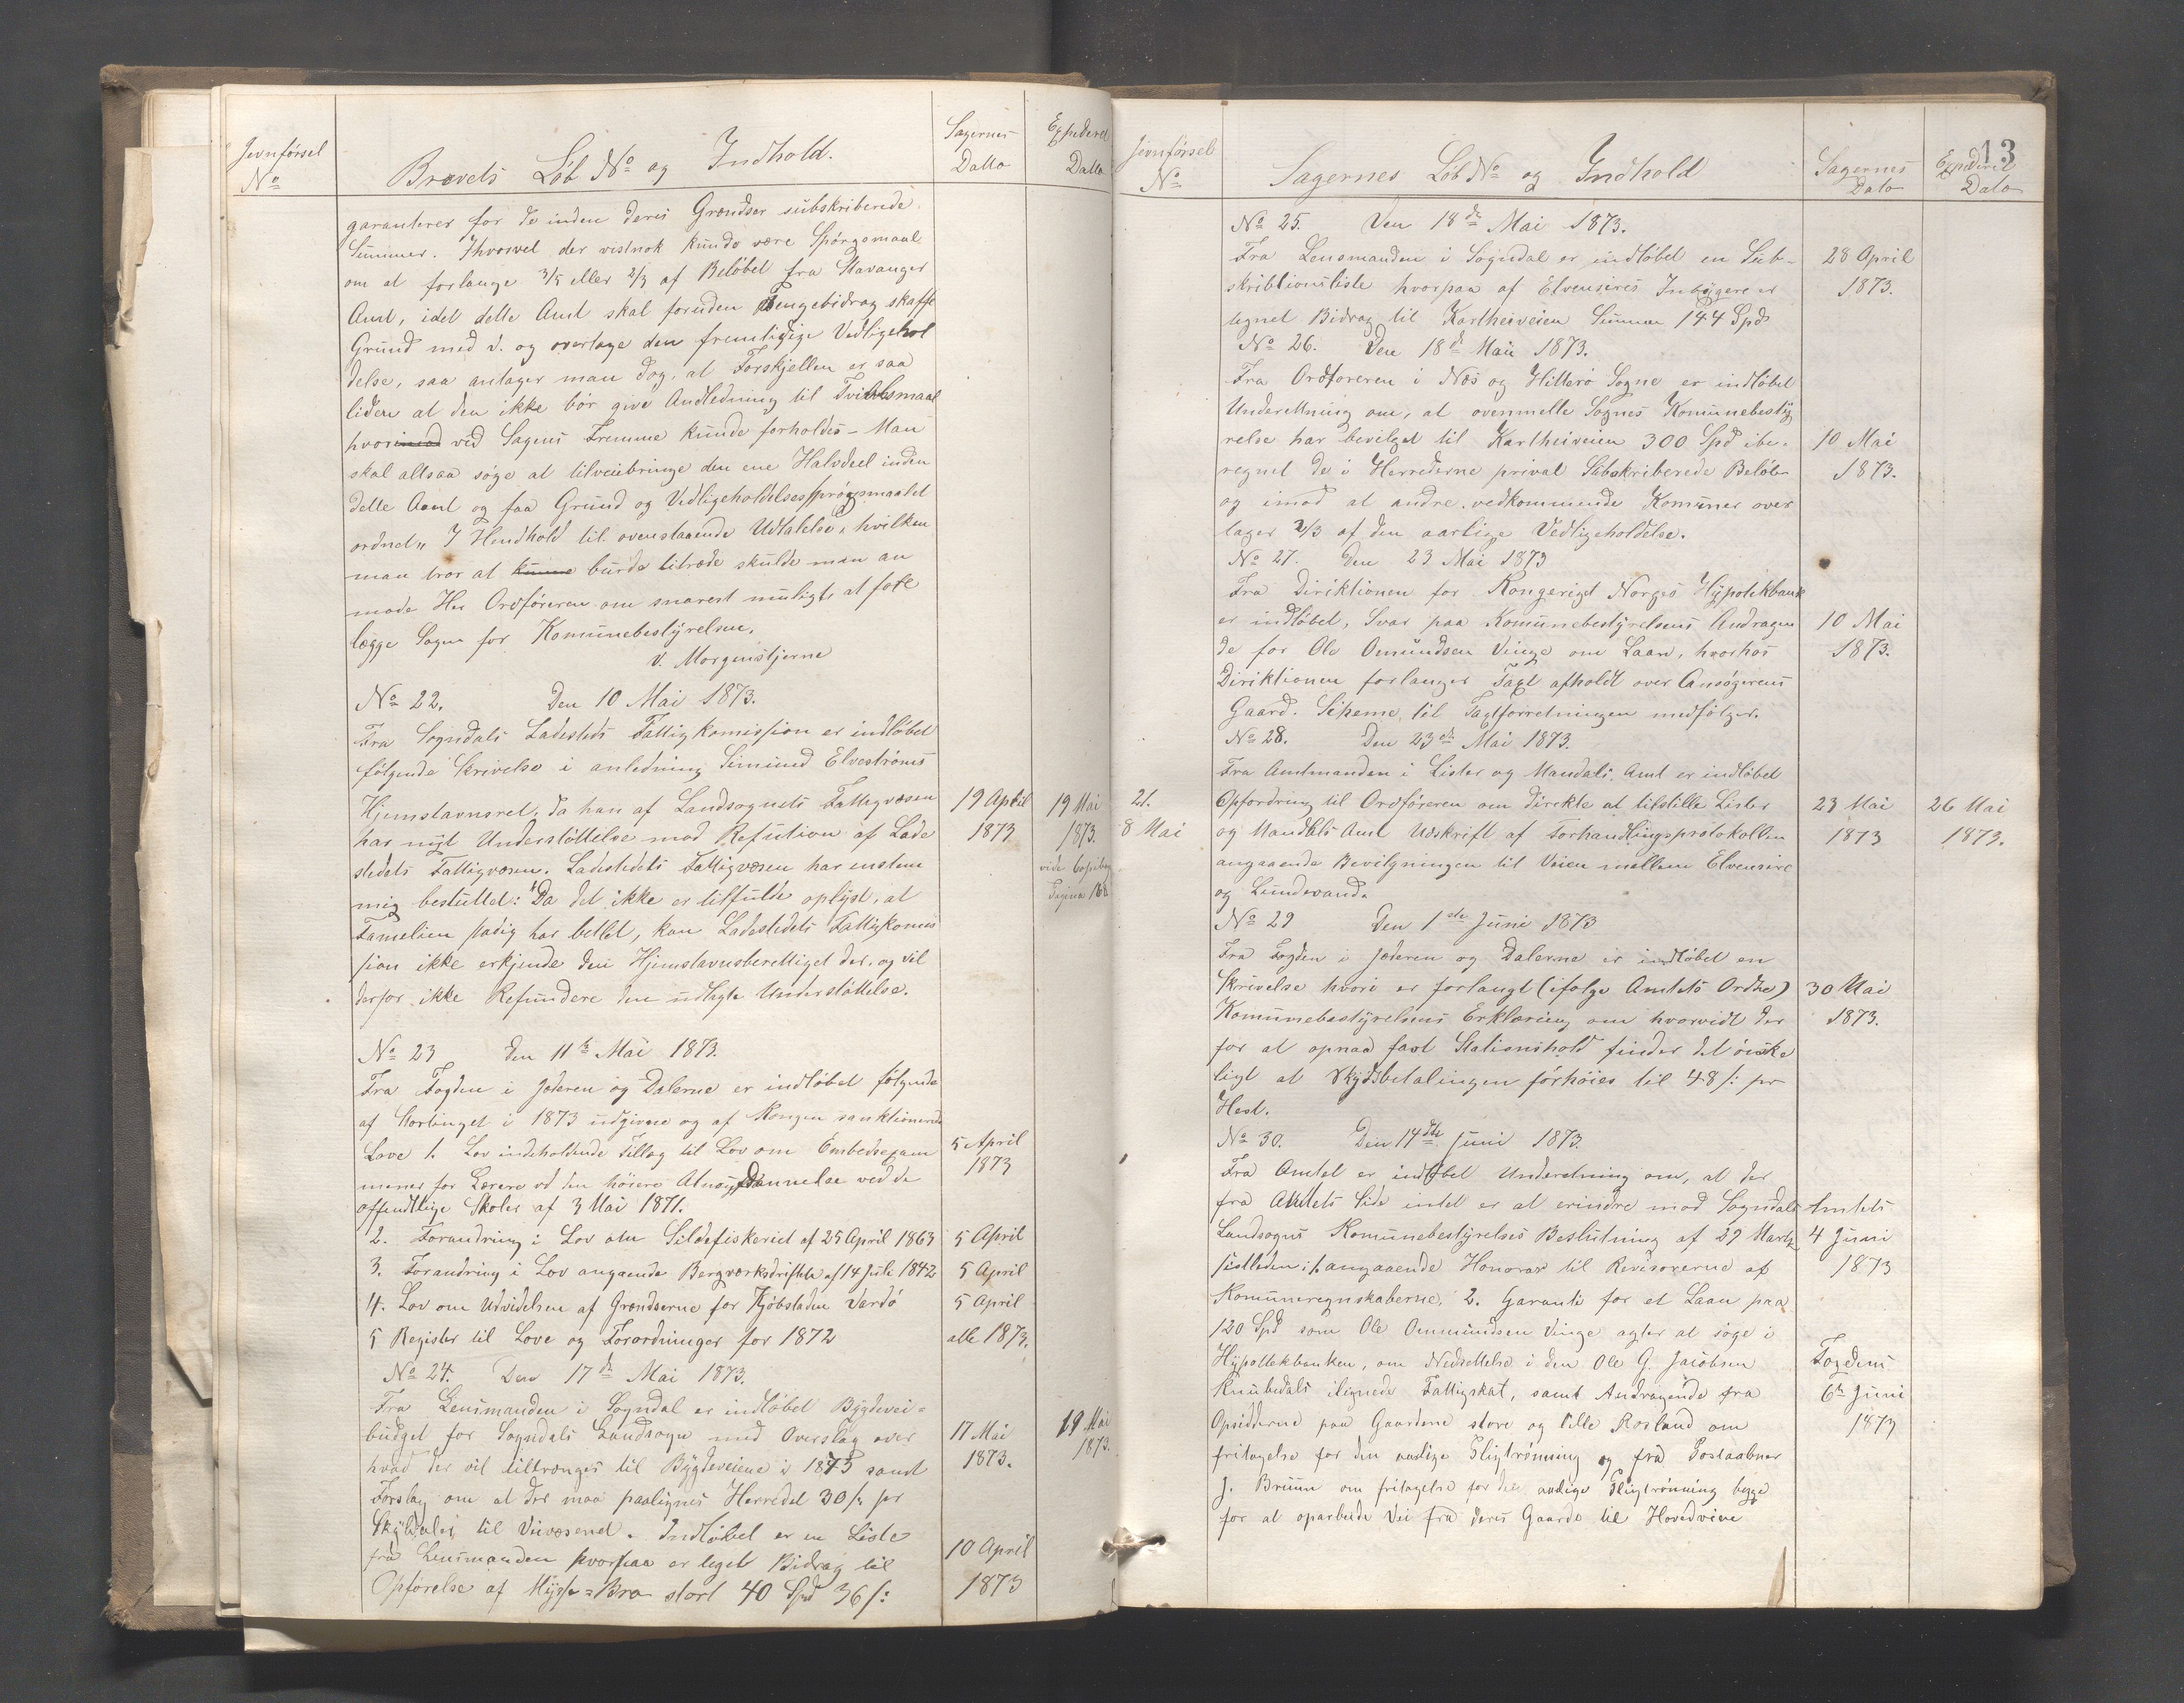 Jevnförsel
No
Brevets Löb No og Indhold.
Sagernes
Datto
Expederet
Datto
garanteres for de inden deres Grændser subskriberede
Summer. Ihvorvel der vistnok kunde være Spörgsmaal
om at forlange 3/5 eller 2/3 af Belöbet fra Stavanger
Amt, idet dette Amt skal foruden Pengebidrag skaffe
Grund med v. og overtage den fremtidige Vedligehol
delse, saa antager man dog, at Forskjellen er saa
liden at den ikke bör give Andledning til Tvivlsmaal
hvorimod ved Sagens Fremme kunde forholdes – Man
skal altsaa söge at tilveiebringe den ene Halvdeel inden
dette Amt og faa Grund og Vedligeholdelsesspörgsmaalet
ordnet„ I Hendhold til ovenstaaende Udtalelse, hvilken
man tror at kunne burde titræde skulde man an
mode Hr Ordföreren om snarest muligt, at fore
lægge Sagen for Komunebestyrelsen.
v. Morgenstjerne
No 22. Den 10 Mai 1873.
Fra Sogndals Ladesteds Fattigkomission er indlöbet
fölgende Skrivelse i anledning Simund Elveströms
Hjemstavnsret, da han af Landsognets Fattigvæsen
19 April
19 Mai
har nyt Understöttelse mod Refution af Lade
1873
1873.
stedets Fattigvæsen. Ladestedets Fattigvæsen har enstem
vide Copibog
mig besluttet: "Da det ikke er tilfulde oplyst, at
Pagina 168
Famelien stadig har betlet, kan Ladestedets Fattigkomis
sion ikke erkjende den Hjemstavnsberettiget der, og vil
derfor ikke Refundere den udlagte Understöttelse.
No 23 Den 11te Mai 1873.
Fra Fogden i Jæderen og Dalerne er indlöbet fölgende
af Stortinget i 1873 udgivne og af Kongen sanktionerede
Love 1. Lov indeholdende Tillæg til Lov om Embedsexam
5 April
1873
mener for Lærere ved den höiere Almendannelse ved de
offendtlige Skoler af 3 Mai 1871.
2. Forandring i Lov om Sildefiskeriet af 25 April 1863
5 April
3. Forandring i Lov angaaende Bergværksdriften af 14 Juli 1842
5 April
4. Lov om Udvidelsen af Grændserne for Kjöbstaden Vardö
5 April
5 Register til Love og Forordninger for 1872
alle 1873.
No 24. Den 17de Mai 1873.
Fra Lensmanden i Sogndal er indlöbet Bygdevei=
budget for Sogndals Landsogn med Overslag over
17 Mai
19 Mai
hvad der vil tiltrænges til Bygdeveiene i 1873 samt
1873.
1873.
Forslag om at der maa paalignes Herredet 30 s. pr
Skylddaler til Veivæsenet. Indlöbet er en Liste
fra Lensmanden hvorpaa er teget Bidrag til
10 April
Opförelse af Mysse=Bro stort 40 Spd 36 s:
1873
13
Jevnförsel
No
Sagernes Löb No og Indhold
Sagernes
Dato
Expederet
Dato
No 25. Den 18de Mai 1873.
Fra Lensmanden i Sogndal er indlöbet en Sub-
28 April
skribtionsliste hvorpaa af Elvenæres Inbygere er
1873.
tegnet Bidrag til Kartheiveien Summa 144 Spd
No 26. Den 18de Mai 1873.
Fra Ordforeren i Næs og Hitterö Sogne er indlöbet
Underettning om, at ovenmelte Sognes Komunebesty
relse har bevilget til Kartheiveien 300 Spd ibe=
10 Mai
regnet de i Herrederne privat Subskriberede Belöb
1873.
og imod at andre vedkommende Komuner over
tager 2/3 af den aarlige Vedligeholdelse.
No 27. Den 23 Mai 1873
Fra Diriktionen for Kongeriget Norges Hypotekbank
er indlöbet, Svar paa Komunebestyrelsens Andragen
10 Mai
de for Ole Omundsen Vinge om Laan, hvorhos
1873.
Diriktionen forlanger Taxt afholdt over Ansögerens
Gaard. Schema til Taxtforretningen medfölger.
No 28. Den 23de Mai 1873.
Fra Amtmanden i Lister og Mandals Amt er indlöbet
21.
Opfordring til Ordföreren om direkte at tilstille Lister
23 Mai
26 Mai
8 Mai
og Mandals Amt Udskrift af Forhandlingsprotokollen
1873
1873.
angaaende Bevilgningen til Veien mellem Elvenære
og Lundevand.
No 29 Den 1ste Juni 1873
Fra Fogden i Jæderen og Dalerne er indlöbet en
Skrivelse hvori er forlangt (ifölge Amtets Ordre)
30 Mai
Komunebestyrelsens Erklæring om hvorvidt der
1873.
for at opnaa fast Stationshold finder det önske
ligt at Skydsbetalingen forhöies til 48 s: pr
Hest.
No 30. Den 14de Juni 1873.
Fra Amtet er indlöbet Underetning om, at der
fra Amtets Side intet er at erindre mod Sogndals
Amtets
Landsogns Komunebestyrelses Beslutning af 29 Marts
4 Juni
sistleden: 1. angaaende Honorar til Revisorerne af
1873
Komuneregnskaberne. 2. Garanti for et Laan paa
120 Spd som Ole Ommundsen Vinge agter at söge i
Hypottekbanken, om Nedsettelse i den Ole G. Jacobsen
Fogdens
Knubedals ilignede Fattigskat, samt Andragende fra
6te Juni
Opsidderne paa Gaardene store og lille Rosland om
1873
fritagelse for den aarlige Pligtrönning og fra Postaabner
J. Bruun om fritagelse for den aarlige Pligtrönning begge
for at oparbeide Vei fra deres Gaarde til Hovedveien